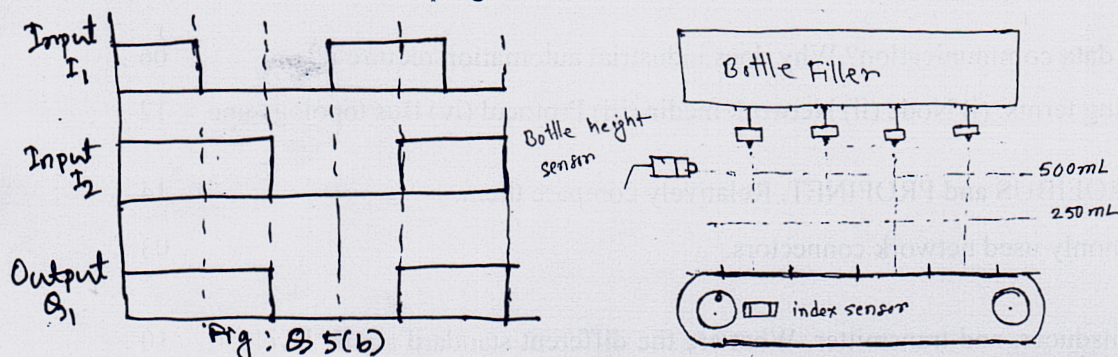 Input
I₁
Input
I₂
Output
Q₁
Fig: Q 5(b)
Bottle Filler
Bottle height
sensor
500mL
250 mL
index sensor